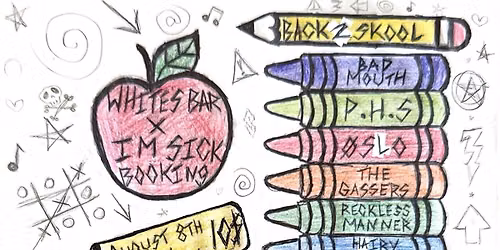 BACK 2 SKOOL
WHITES BAR
X
I'M SICK
BOOKING
BAD
MOUTH
P.H.S
ØSLO
THE
GASSERS
RECKLESS
MANNER
HAIRY
AUGUST 8TH
10$